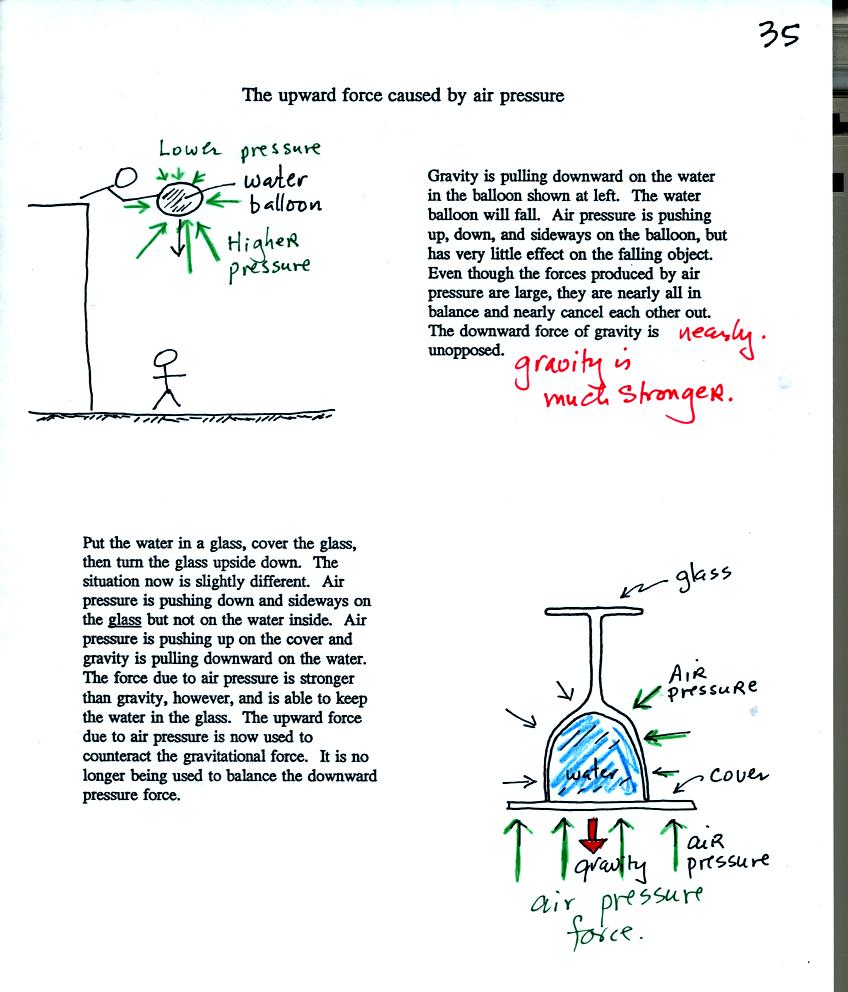 35
The upward force caused by air pressure
Lower pressure
water
balloon
Higher
pressure
Gravity is pulling downward on the water
in the balloon shown at left. The water
balloon will fall. Air pressure is pushing
up, down, and sideways on the balloon, but
has very little effect on the falling object.
Even though the forces produced by air
pressure are large, they are nearly all in
balance and nearly cancel each other out.
The downward force of gravity is nearly.
unopposed.
gravity is
much stronger.
Put the water in a glass, cover the glass,
then turn the glass upside down. The
situation now is slightly different. Air
pressure is pushing down and sideways on
the glass but not on the water inside. Air
pressure is pushing up on the cover and
gravity is pulling downward on the water.
The force due to air pressure is stronger
than gravity, however, and is able to keep
the water in the glass. The upward force
due to air pressure is now used to
counteract the gravitational force. It is no
longer being used to balance the downward
pressure force.
glass
Air
pressure
water
cover
air
pressure
gravity
air pressure
force.